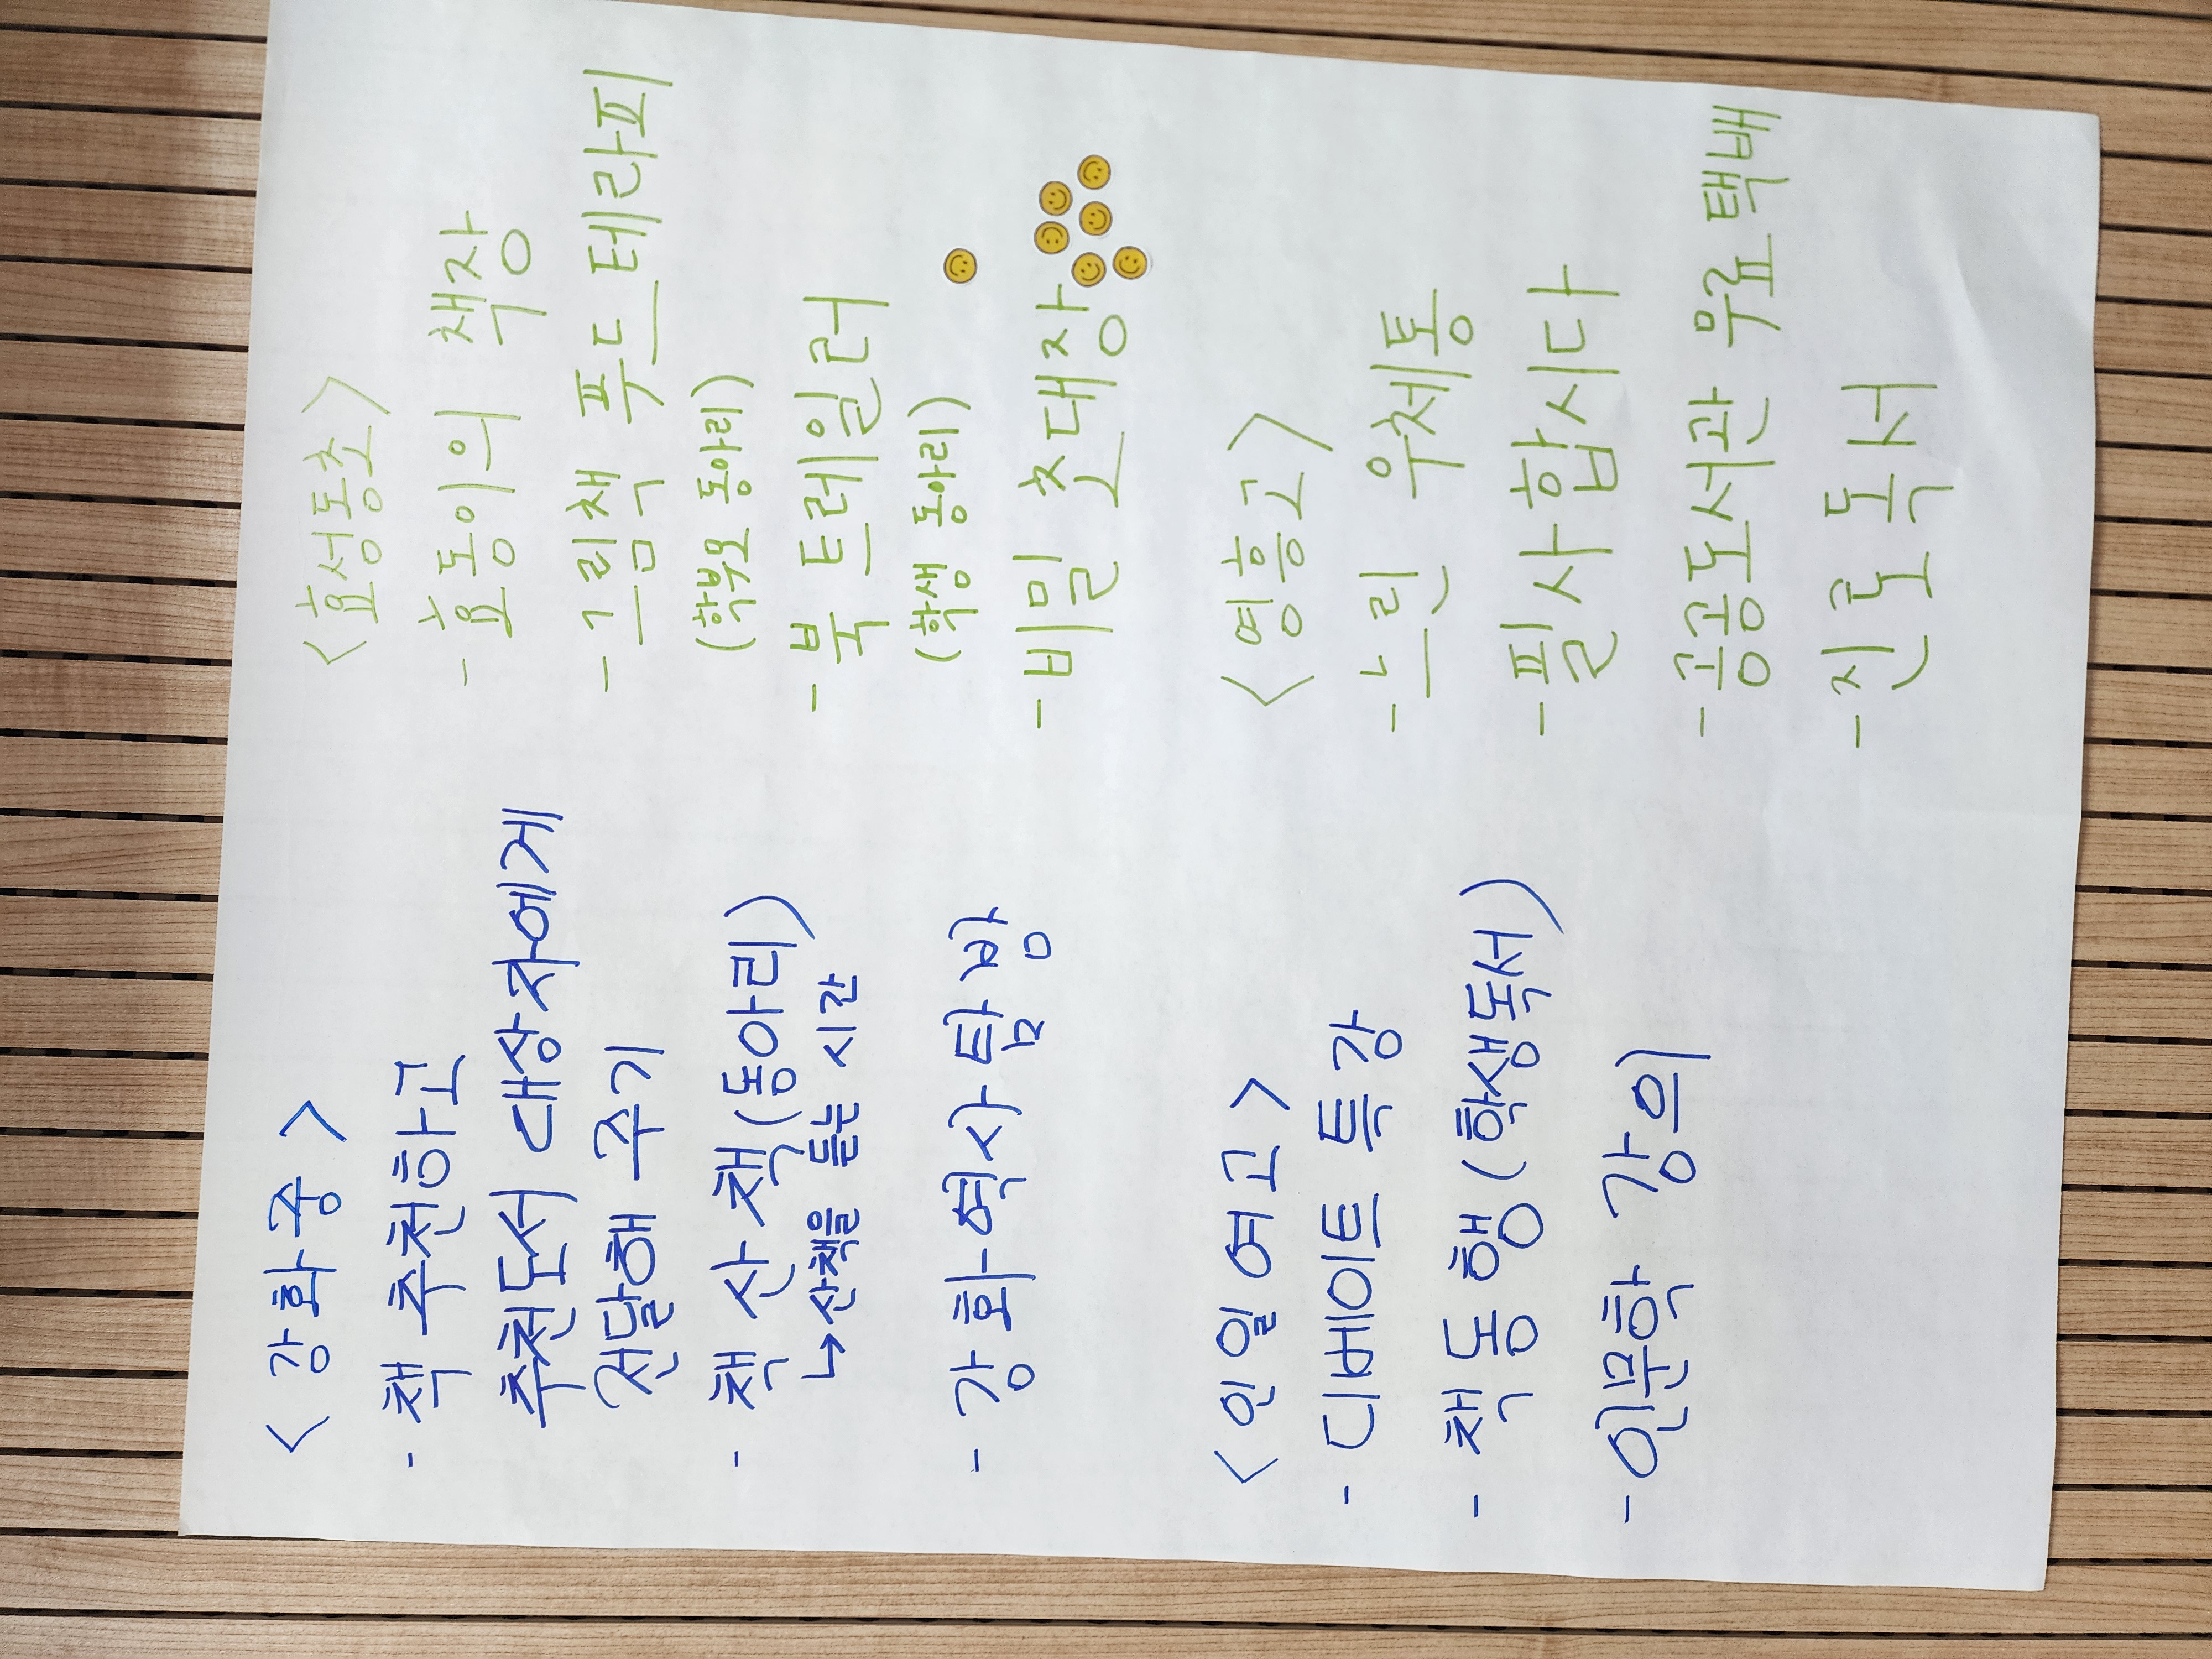 <강화중>
- 책 추천하고
추천도서 대상자에게
전달해 주기
- 책 산책(동아리)
↳산책을 듣는 시간
- 강화 역사 탐방
<인일여고>
- 디베이트 특강
- 책동행(학생독서)
- 인문학 강의
<효성동초>
- 효동이의 책장
- 그림책 푸드 테라피
(학부모 동아리)
- 북 트레일러
(학생 동아리)
- 비밀 초대장
<영흥고>
- 느린 우체통
- 필사합시다
- 공공도서관 무료 택배
- 진로독서